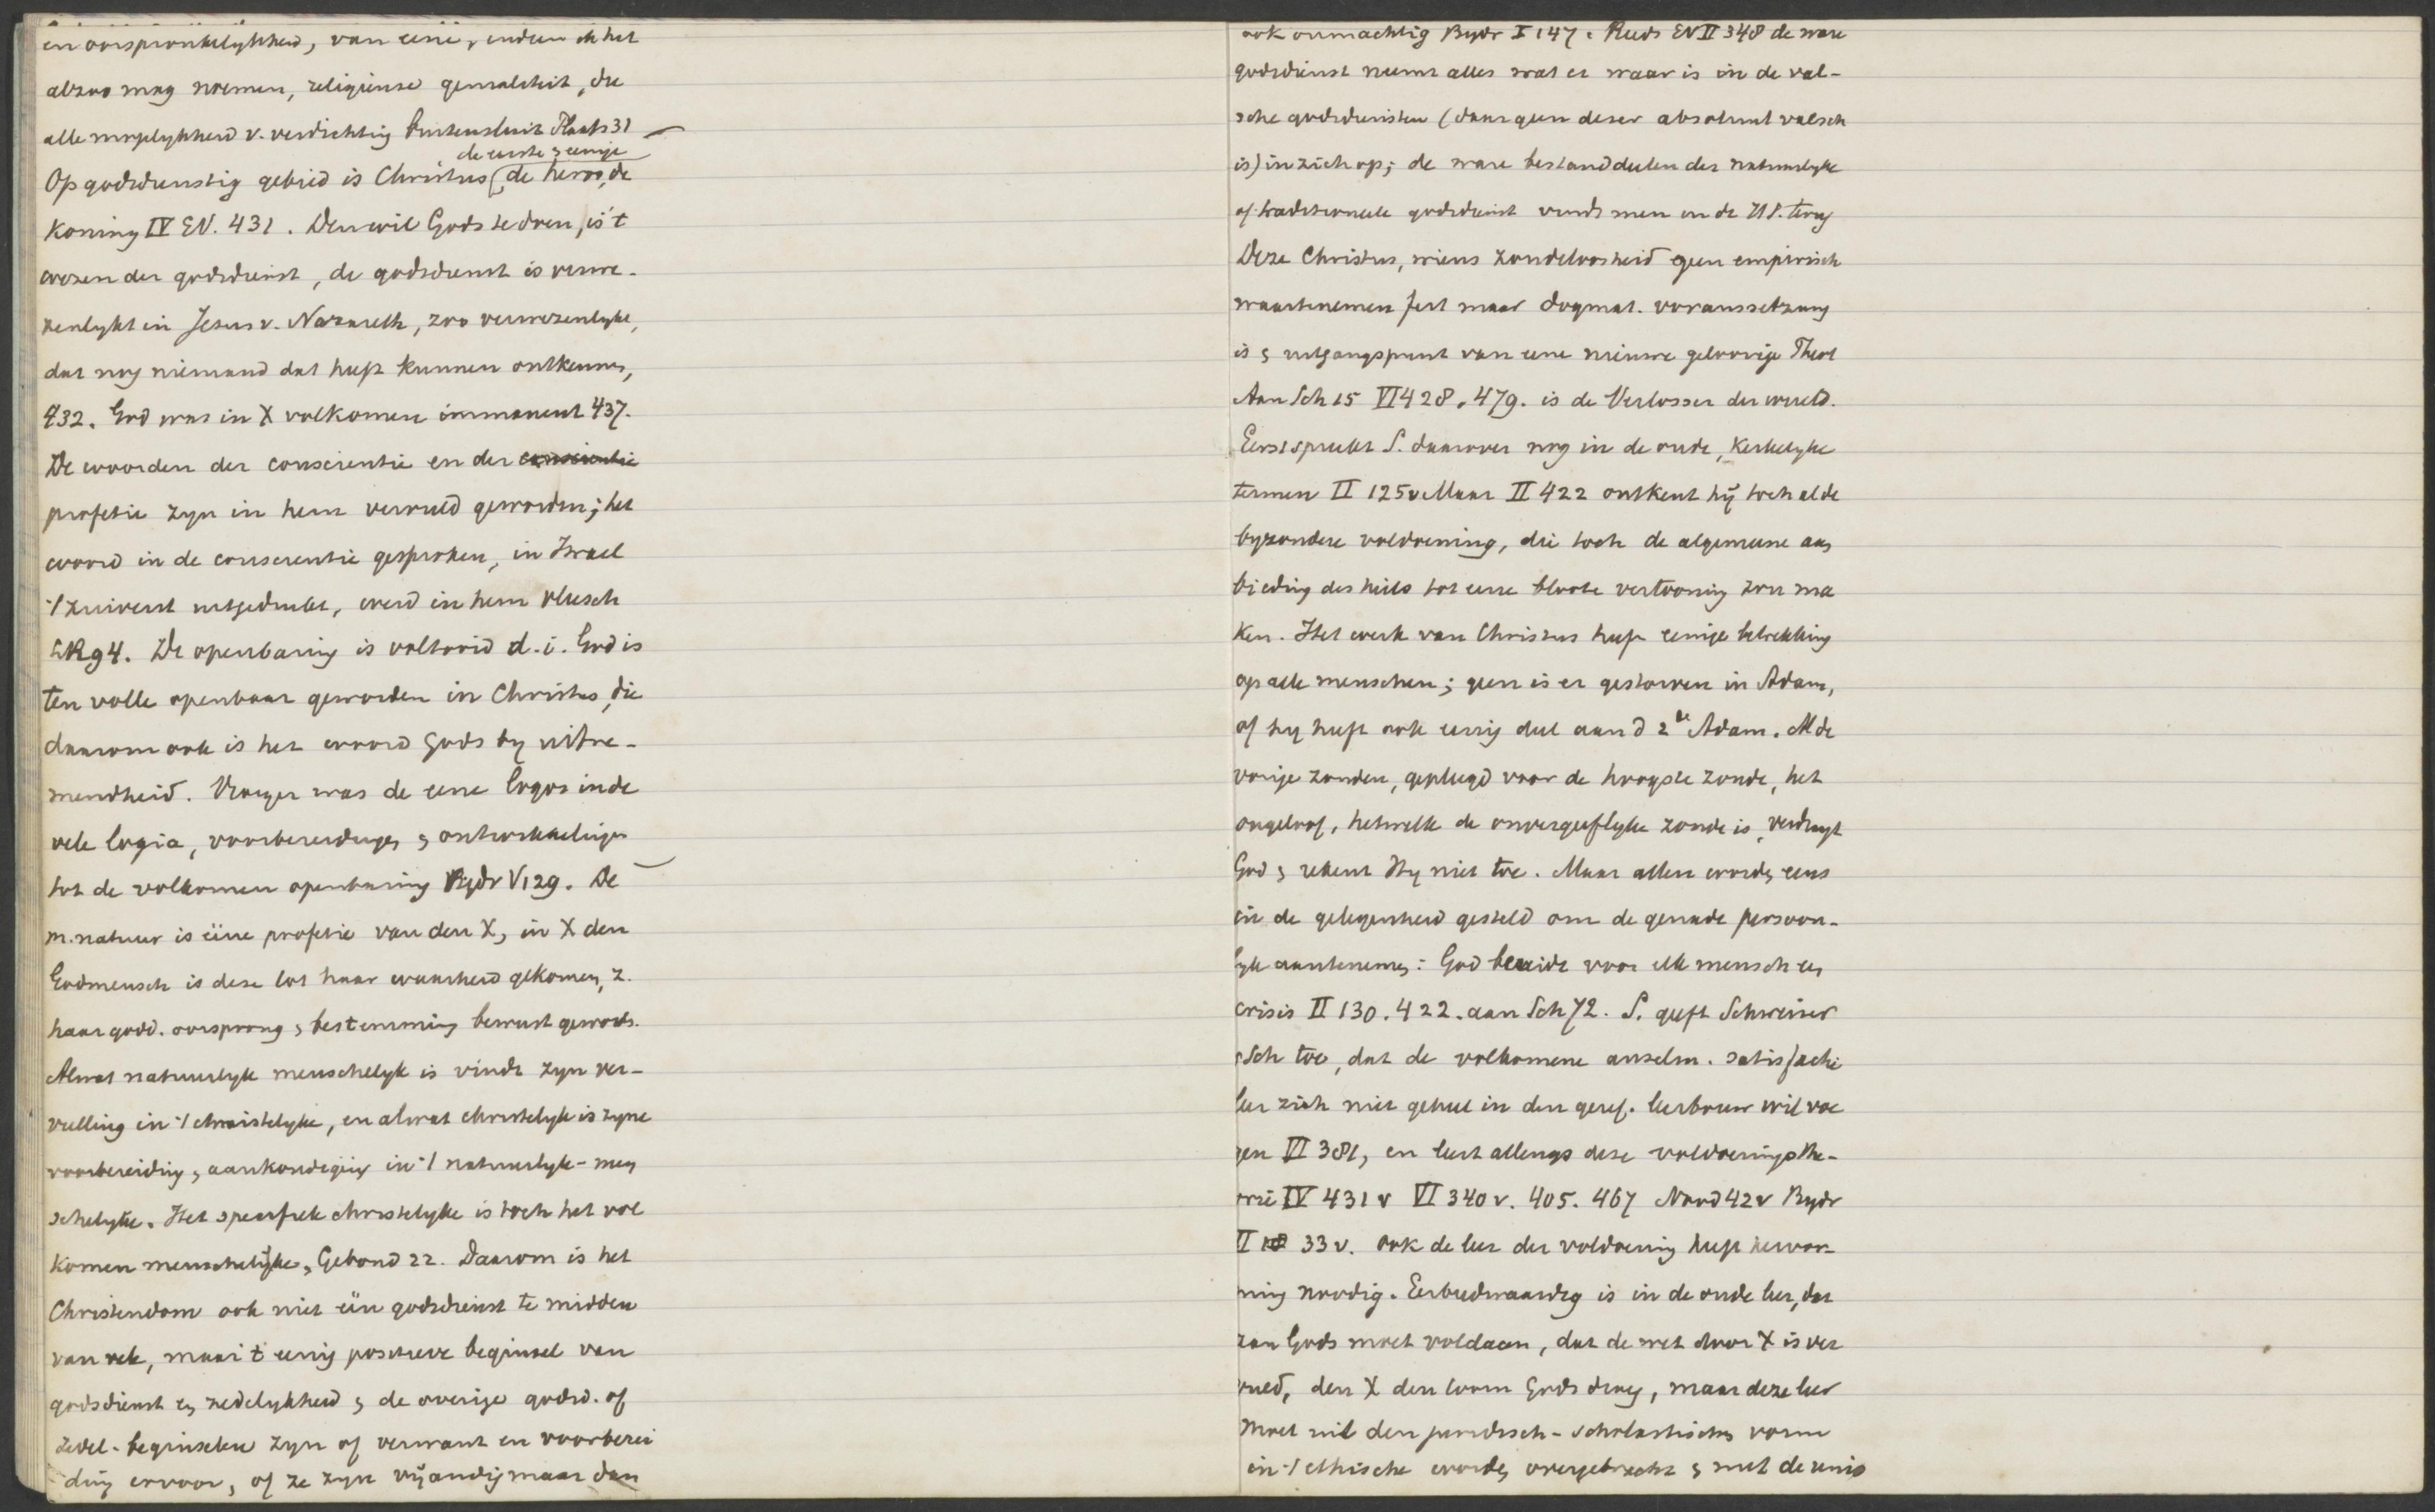 en oorspronkelykheid, van eene, indien ik het
alzoo mag noemen, religieuse genialiteit, die
alle mogelykheid v. verdichting buitensluit Plaats 31 –
de eerste & eenige
Op godsdienstig gebied is Christus de heros, de
Koning IV EV. 431. Den wil Gods te doen, is 't
wezen der godsdienst, de godsdienst is verwe-
zenlykt in Jezus v. Nazareth, zoo verwezenlykt,
dat nog niemand dat heeft kunnen ontkennen,
432. God was in X volkomen immanent 437.
De woorden der conscientie en der conscientie
profetie zyn in hem vervuld geworden; het
woord in de conscientie gesproken, in Israel
't zuiverst uitgedrukt, werd in hem vleesch
LR 94. De openbaring is voltooid d.i. God is
ten volle openbaar geworden in Christus, die
daarom ook is het woord Gods by uitne-
mendheid. Vroeger was de eene logos in de
vele logia, voorbereidingen & ontwikkelingen
tot de volkomen openbaring Bydr V 129. De
m. natuur is eene profetie van den X, in X den
Godmensch is deze tot haar waarheid gekomen, z.
haar godd. oorsprong & bestemming bewust geword.
Alwat natuurlyk menschelyk is vindt zyn ver-
vulling in 't christelyke, en alwat christelyk is zyne
voorbereiding & aankondiging in 't natuurlyk-men
schelyke. Het specifiek christelyke is toch het vol
komen menschelyke, Gebond 22. Daarom is het
Christendom ook niet een godsdienst te midden
van vele, maar 't eenig positieve beginsel van
godsdienst en zedelykheid & de overige godsd. of
zedel. beginselen zyn of verwant en voorberei
ding ervoor, of ze zyn vijandig maar dan
ook onmachtig Bydr I 147. Reeds EV II 348 de ware
godsdienst neemt alles wat er waar is in de val-
sche godsdiensten (daar geen dezer absoluut valsch
is) in zich op; de ware bestanddeelen der natuurlyke
of traditioneele godsdienst vindt men in de HS. terug
Deze Christus, wiens zondeloosheid geen empirisch
waartenemen feit maar dogmat. voraussetzung
is & uitgangspunt van eene nieuwe geloovige Theol
Aan Sch 15 VI 428. 479. is de Verlosser der wereld.
Eerst spreekt S. daarover nog in de oude, kerkelyke
termen II 125v Maar II 422 ontkent hij toch al de
byzondere voldoening, die toch de algemeene aan
bieding des heils tot eene bloote vertooning zou ma
ken. Het werk van Christus heeft eenige betrekking
op alle menschen; geen is er gestorven in Adam,
of hy heeft ook eenig deel aan d 2e Adam. Al de
vorige zonden, gepleegd voor de hoogste zonde, het
ongeloof, hetwelk de onvergeeflyke zonde is, verdraagt
God & rekent Hy niet toe. Maar allen worden eens
in de gelegenheid gesteld om de genade persoon-
lyk aantenemen: God bereidt voor elk mensch een
crisis II 130. 422. aan Sch 72. S. geeft Schweizer
& Sch toe, dat de volkomene anselm. satisfactie
leer zich niet geheel in den geref. leerbouw wil voe
gen VI 381, en leert allengs deze voldoeningsthe-
orie IV 431 v VI 340 v. 405. 467 Nood 42v Bydr
II 33 v. ook de leer der voldoening heeft hervor
ming noodig. Eerbiedwaardig is in de oude leer, dat
aan Gods moet voldaan, dat de wet door X is ver
vuld, den X den toorn Gods droeg, maar deze leer
moet uit den juridisch-scholastischen vorm
in 't ethische worden overgebracht & met de unio